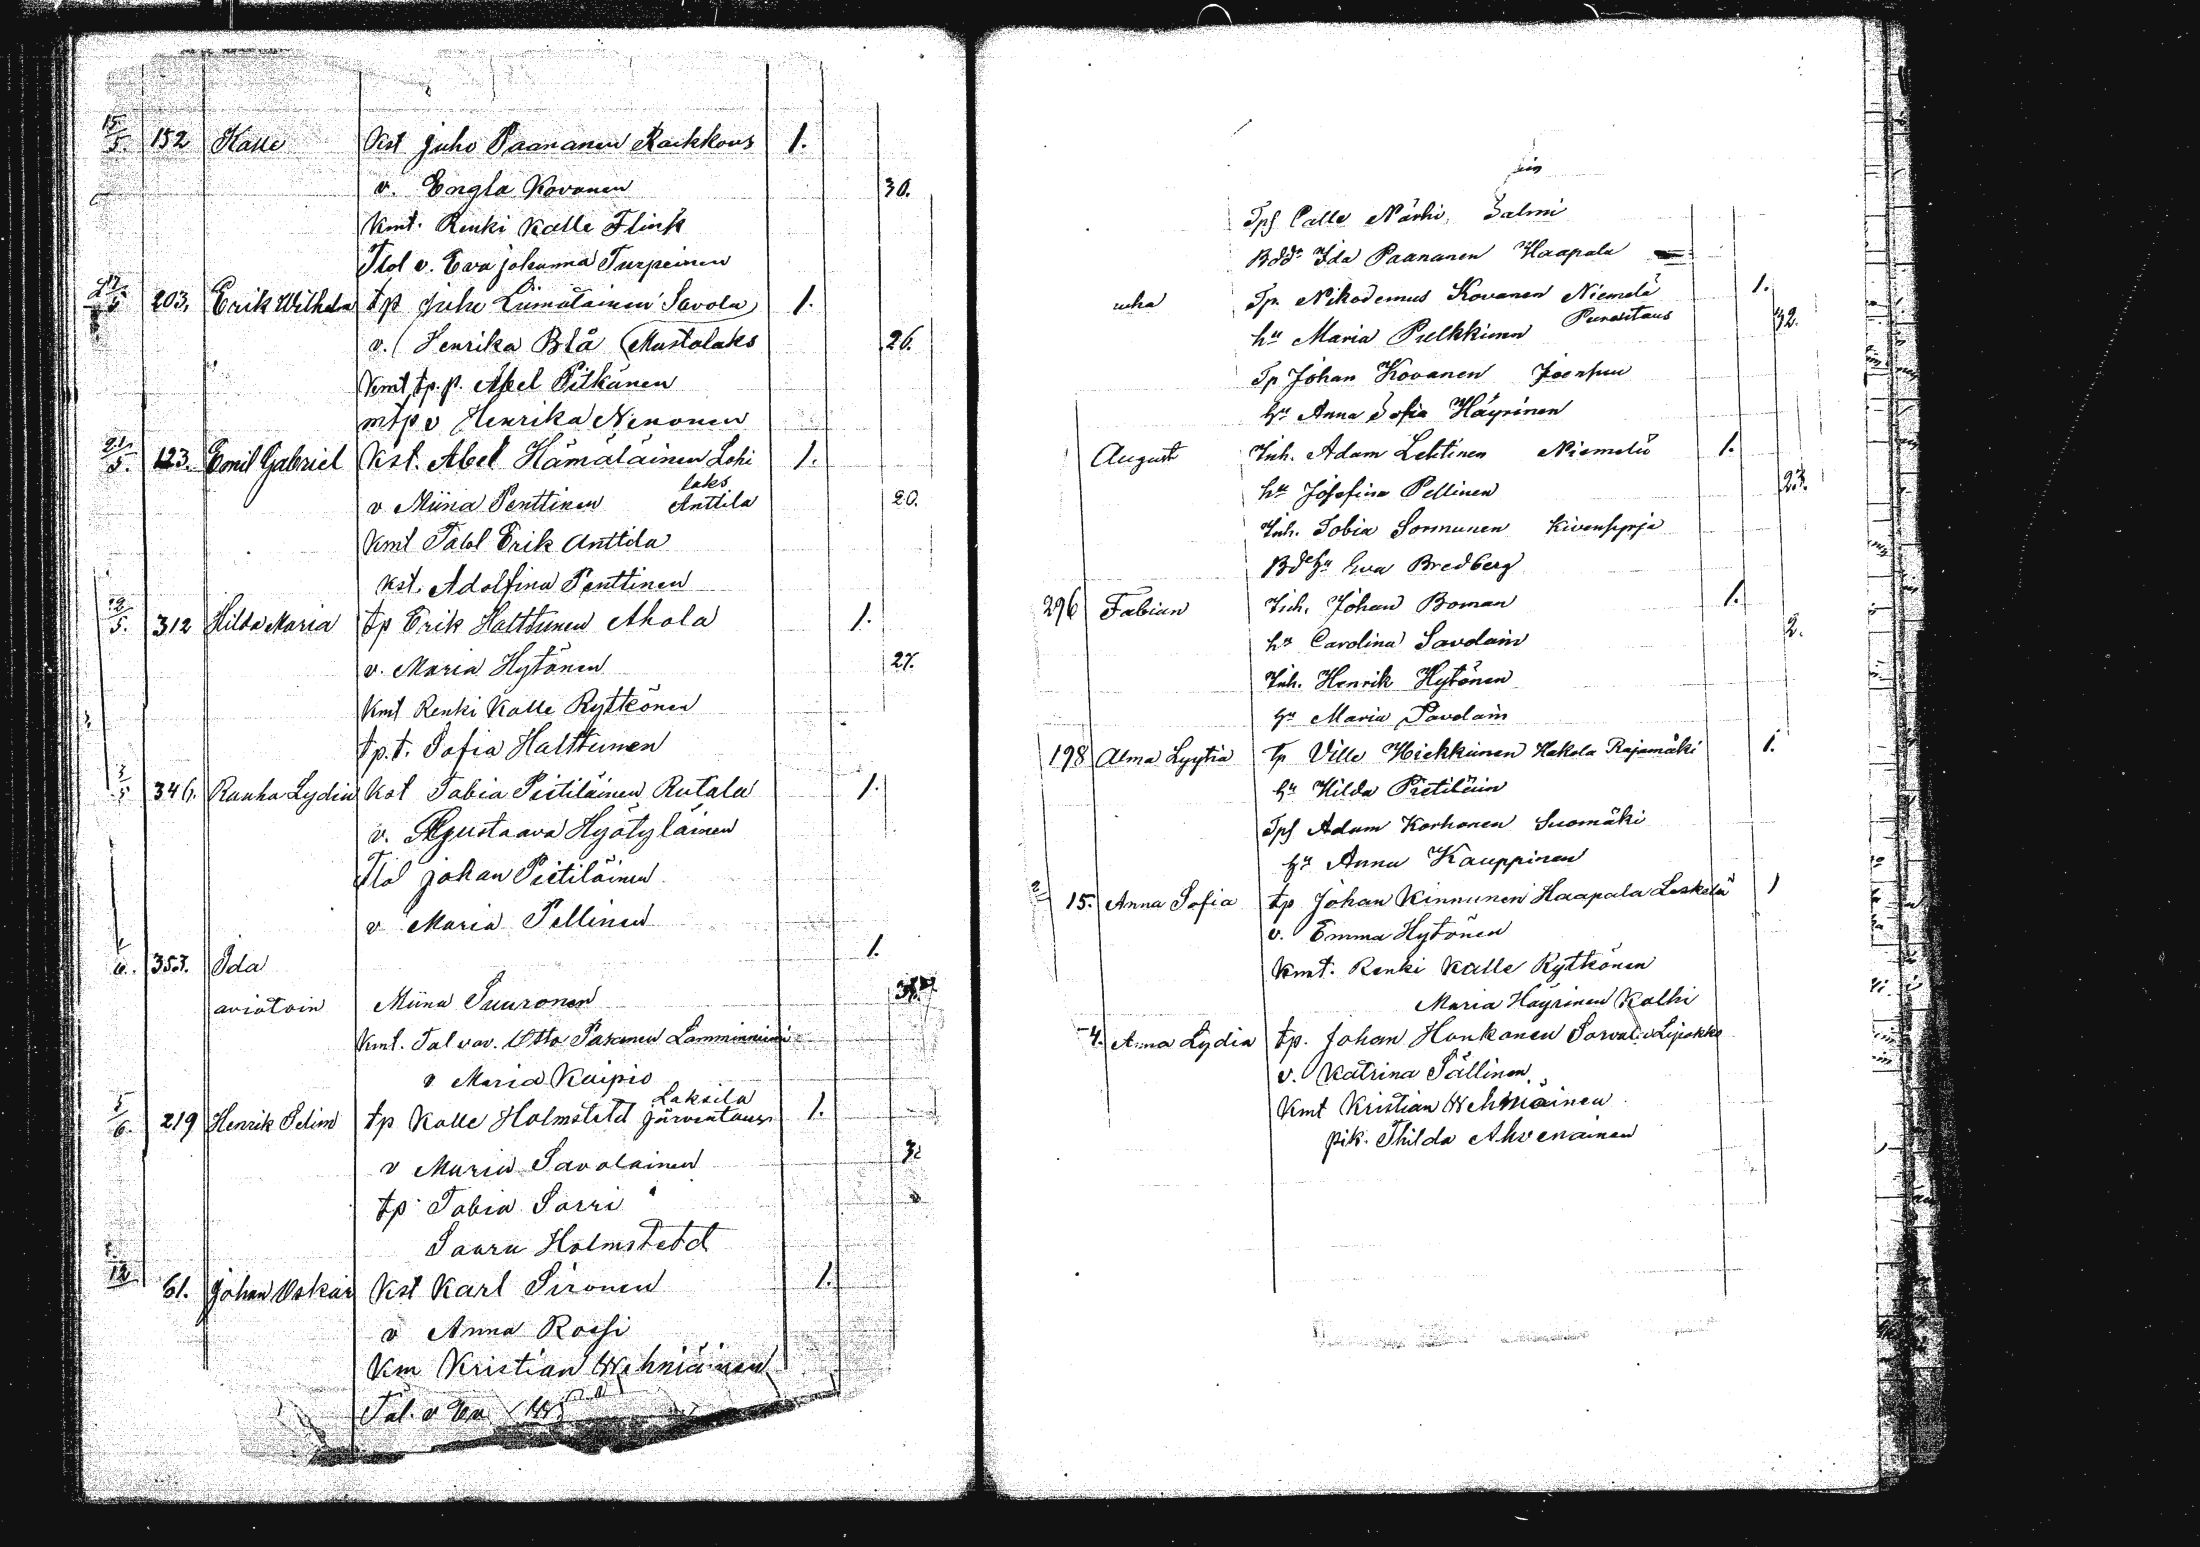 15/5. 152 Kalle Kst Juho Paananen Raikkous 1.
v. Engla Kovanen 30.
Kmt. Renki Kalle Flink
Tlol v. Eva Johanna Turpeinen
203. Erik Wilhelm tp Juho Liimatainen Savola 1.
v. Henrika Blå Mustolaks 26.
Kmt tp. p. Abel Pitkänen
mtp v Henrika Ninonen
21/5. 123. Emil Gabriel Kst. Abel Hämäläinen Lohi 1.
laks
v Miina Penttinen Anttila 20.
Kmt Talol Erik Anttila
Kst. Adolfina Penttinen
19/5. 312 Hilda Maria tp Erik Halttunen Ahola 1.
v. Maria Hytönen 27.
Kmt Renki Kalle Rytkönen
tp. t. Sofia Halttunen
3/5 346. Rauha Lydia Kst Tobia Pietiläinen Rutala 1.
v. Agustaava Hyötyläinen
Tlol Johan Pietiläinen
v Maria Pellinen
353. Ida 1.
aviotoin Miina Suuronen
Kmt. Tal vav. Otto Pasanen Lamminniemi
v Maria Kaipio
Laksila
5/6. 219 Henrik Selim tp Kalle Holmstetd Järventaus 1.
v Maria Savolainen
tp Tobia Sorri
Saara Holmstetd
12 61. Johan Oskar Kst Karl Sironen 1.
v Anna Rossi
Km Kristian Wehniäinen
Tal. v Eva
Calle Närhi, Salmi
Ida Paananen Haapala
Tp. Nikodemus Kovanen Niemelä 1.
hu Maria Pulkkinen Purastaus 32.
Tp Johan Kovanen Joensuu
hu Anna Sofia Häyrinen
August Inh. Adam Lehtinen Niemelä 1.
hu Josefina Pellinen 23.
Inh. Tobia Sormunen Kivensyrjä
Eva Bredberg
296 Fabian Inh. Johan Boman 1.
hu Carolina Savolain 2.
Inh. Henrik Hytönen
hu Maria Savolain
198 Alma Lyytia tp Ville Hiekkinen Hakola Rajamäki 1.
hu Hilda Pietiläin
Adam Korhonen Suomäki
hu Anna Kauppinen
15. Anna Sofia tp Johan Kinnunen Haapala Leskelä 1
v. Emma Hytönen
Kmt. Renki Kalle Rytkönen
Maria Häyrinen Kolhi
4. Anna Lydia tp. Johan Honkanen
v. Katrina Sällinen
Kmt Kristian Wehniäinen
pik. Thilda Ahvenainen